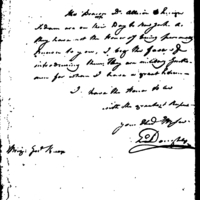 The Bearers Dr. Allison &
Adam are on their Way to New York. As
they have not the Honor of being personally
known to you, I beg the favor of
introducing them. They are military
men for whom I have a great esteem
I have the honor to be
with the greatest Respect
Your
Majr. Genl. Knox